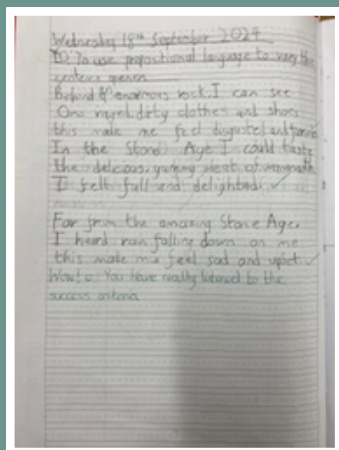 Wednesday 18th September 2024
LO: To use prepositional language to vary the
sentence openers
Behind enormous rock I can see
dirty clothes and shoes
this make me feel disgusted and
In the Stone Age I could taste
the delicious, yummy meat of mammoth
I felt full and delighted.
Far from the amazing Stone Age,
I heard rain falling down on me
this make me feel sad and upset.
Wow! You have really listened to the
success criteria